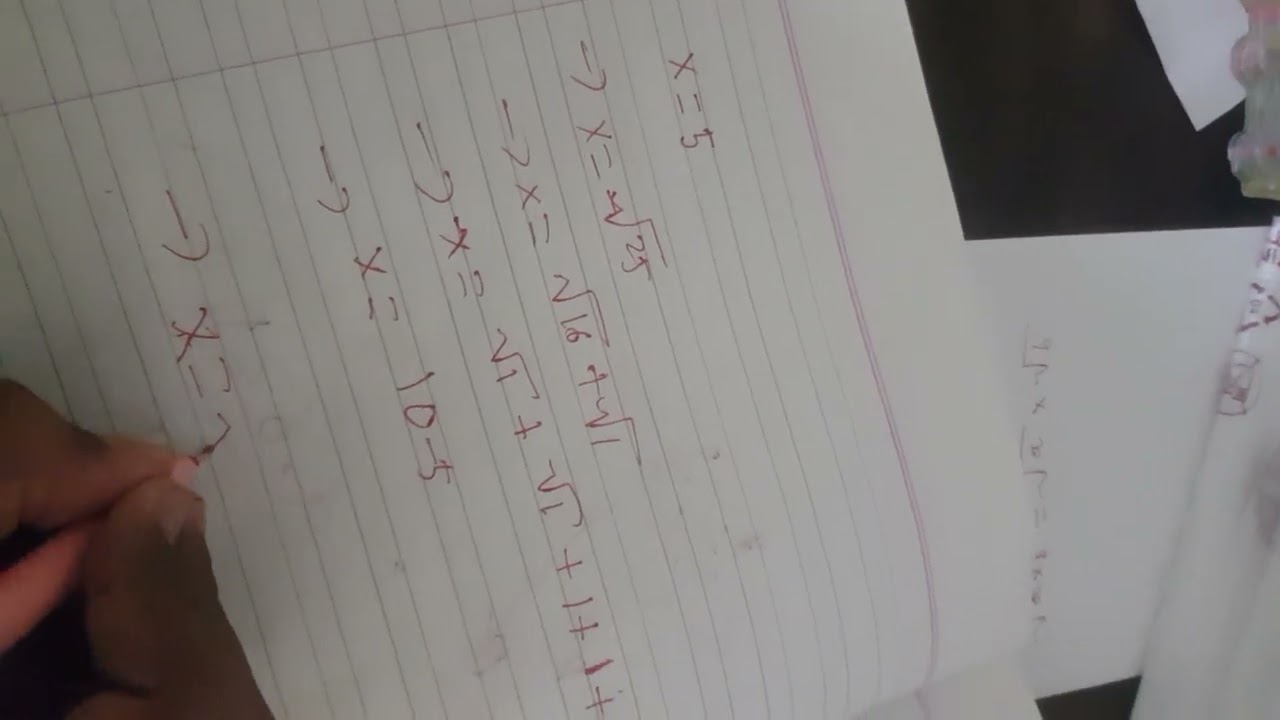 x = 5
→ x = √25
→ x = √16 + √1
→ x = √1 + √1 + 1 + 1 +
→ x = 10-5
→ x =